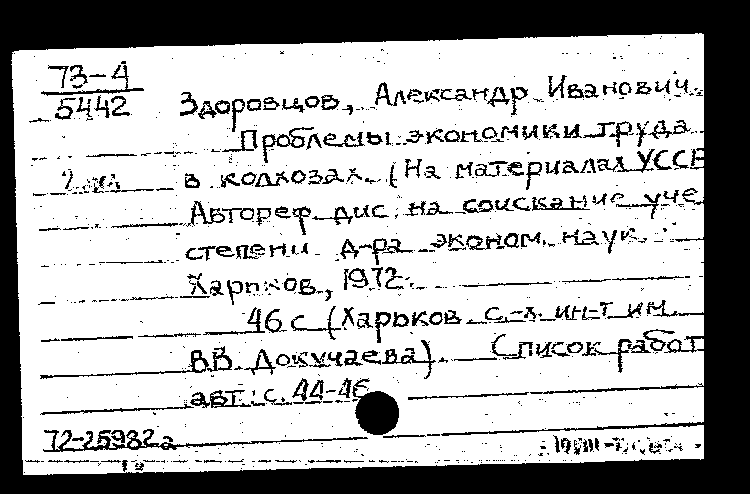 73-4
5442
Здоровцов, Александр Иванович.
Проблемы экономики труда
в колхозах. (На материалах УССР
Автореф. дис. на соискание уче
степени д-ра эконом. наук.
Харьков, 1972.
46 с (Харьков. с.-х. ин-т им.
В.В. Докучаева). Список работ
авт.: с. 44-46
72-25982а